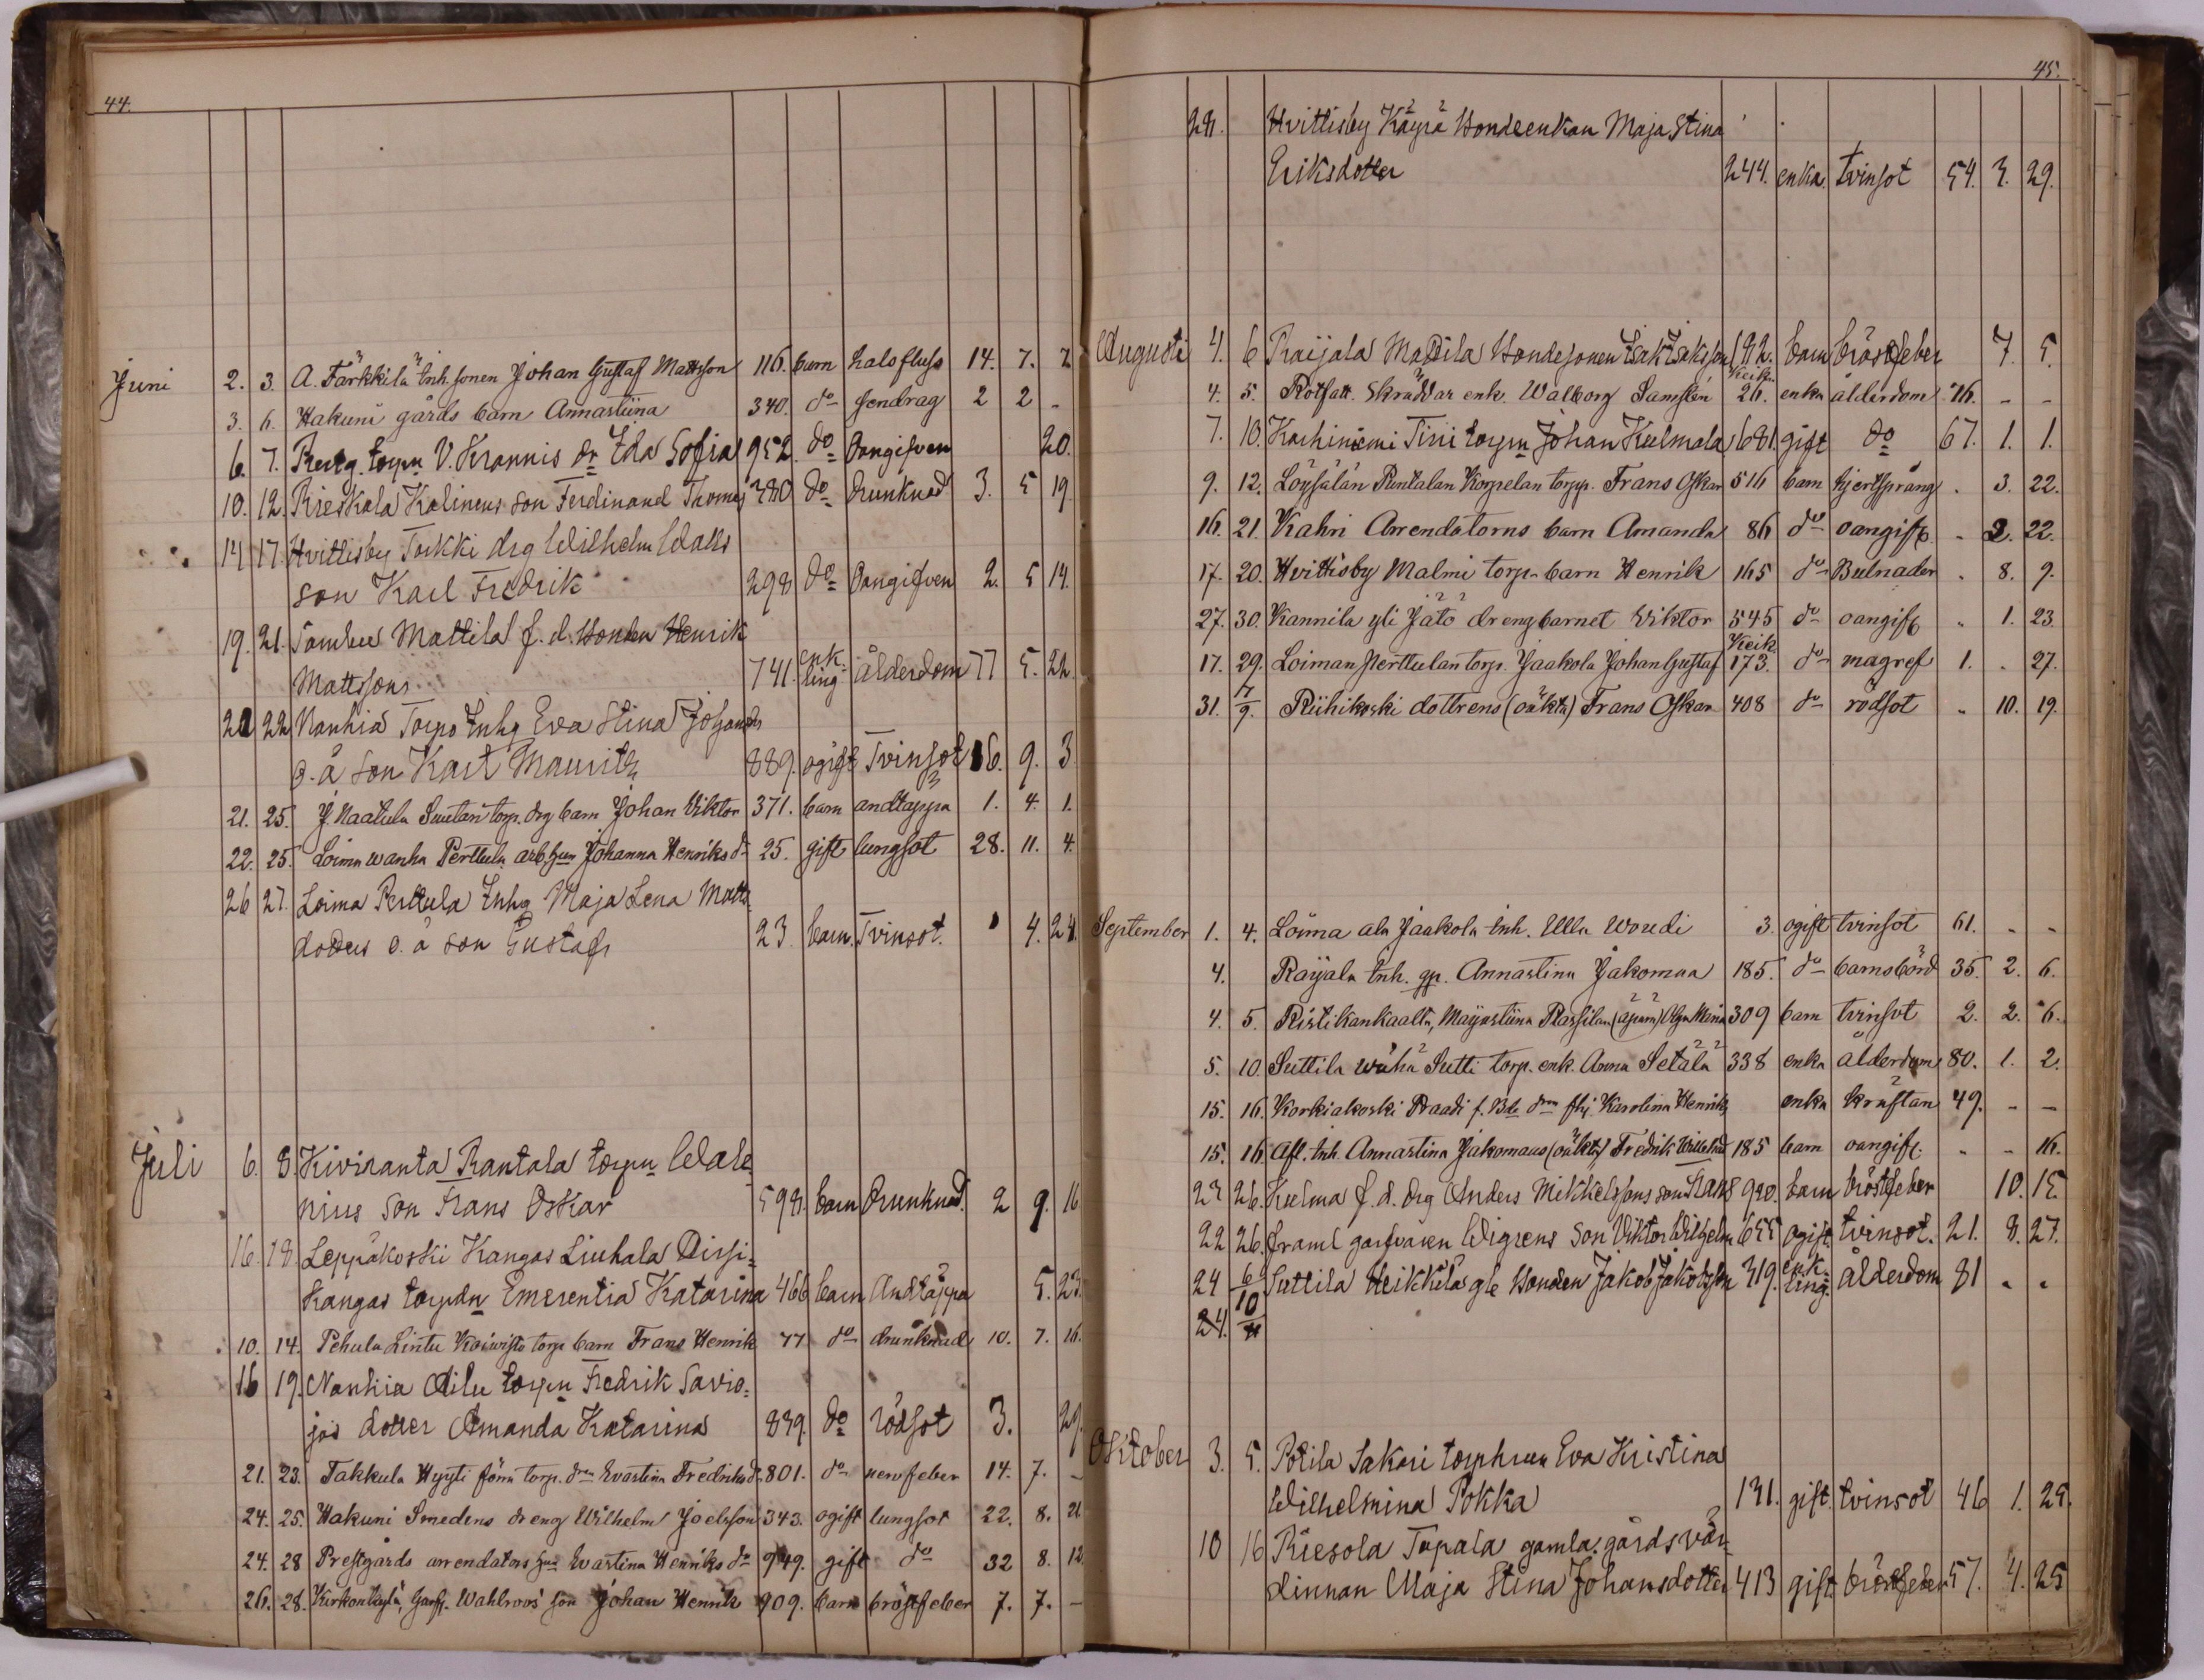 44.
Juni 2. 3. A. Färkkilä Inh. sonen Johan Gustaf Mattsson 116. barn halsfluss 14. 7. 7
3. 6. Hakuni gårds barn Annastiina 340. do fendrag 2 2 -
6. 7. Restg. torpn V. Krannis dr Ida Sofia 952. do Oangifven 20.
10. 12. Rieskala Kalinens son Ferdinand Thomas 380 do Drunknad 3. 5 19
14 17. Hvittisby Torkki drg Wilhelm Walls
son Karl Fredrik 298 do Oangifven 2. 5 14.
19. 21. Sambu Mattila f. d. Bonden Henrik
Mattsson 741. enkling ålderdom 77 5. 22
21 22 Nanhia Torpo Inhg Eva Stina Johans
o. ä son Karl Mauritz 889. ogift Tvinsot 16. 9. 3
21. 25. J. Naatula Suutari torp. drg barn Johan Viktor 371. barn andtäppa 1. 4. 1.
22. 25. Loima wanha Perttula arb. hun Johanna Henriks dr 25. gift lungsot 28. 11. 4.
26 27. Loima Perttula Inhg Maja Lena Matts
dotters o. ä son Gustaf 23. barn Tvinsot. 4. 24.
Juli 6. 8. Kiviranta Rantala torpn Wale
nius son Frans Oskar 598. barn Drunknad. 2 9. 16
16. 18. Leppäkoski Kangas Liuhala Dissi=
kangas torpdn Emerentia Katarina 466 barn Andtäppa 5. 23.
10. 14. Pehula Lintu Koiwisto torp barn Frans Henrik 77 do drunknad 10. 7. 16.
16 19. Nanhia Ailu torpn Fredrik Savio=
jas dotter Amanda Katarina 839. do rödsot 3. 29.
21. 23. Takkula Hyyti förra torp. drn Evastina Fredriks dr 801. do nervfeber 14. 7. -
24. 25. Hakuni Smedens dreng Wilhelm Joelsson 343. ogift lungsot 22. 8. 21
24. 28 Prestgårds arrendators hun Evastina Henriks dr 949. gift do 32 8. 12
26. 28. Kirkonkylä, Garfv. Wahlroos' son Johan Henrik 909. barn bröstfeber 7. 7. -
45.
28. Hvittisby Käyrä Bondeenkan Maja Stina
Eriksdotter 244. enka tvinsot 54. 3. 29.
Augusti 4. 6 Raijala Mattila Bondesonen Isak Isaksson 192. barn bröstfeber 7. 5.
4. 5. Rotfatt. Skräddar enk. Walborg Samstén Keik. 26. enka ålderdom 76. - -
7. 10. Karhiniemi Tiii torpn Johan Kulmala 681. gift do 67. 1. 1.
9. 12. Löysälän Runtalan Korpelan torpp. Frans Oskar 516 barn hjertsprång . 3. 22.
16. 21. Kahri Arrendatorns barn Amanda 86 do oangift. - 2. 22.
17. 20. Hvittisby Malmi torp- barn Henrik 165 do Bulnader . 8. 9.
27. 30. Kannila yli Jätö drengbarnet Viktor 545 do oangift " 1. 23.
17. 29. Loiman Perttulan torp. Jaakola Johan Gustaf Keik 173. do magref 1. . 27.
31. 17/9. Riihikoski dottrens (oäkta) Frans Oskar 408 do rödsot " 10. 19.
September 1. 4. Loima ala Jaakola inh. Ulla Woudi 3. ogift tvinsot 61. - -
4. Raijala Inh. gp. Annastina Jakomaa 185. do barnsbörd 35. 2. 6.
4. 5. Ristikankaalta, Majastiina Rassilan (äpärä) Olga Maria 309 barn tvinsot 2. 2. 6.
5. 10. Suttila wähä Sutti torp. enk. Anna Setälä 338 enka ålderdom 80. 1. 2.
15. 16. Korkiakoski Praadi f. Bde drn flij Karolina Henriks enka kräftan 49. - -
15. 16. Afl. inh. Annastina Jakomaas (oäkta) Fredrik Wilhelm 185 barn oangift. - - 16.
23 26. Kulma f. d. drg Anders Mikkelssons son Frans 920. barn bröstfeber 10. 15.
22 26. framl garfvaren Wigrens son Viktor Wilhelm 655 ogift tvinsot. 21. 8. 27.
24 6/10 Suttila Heikkilä gle Bonden Jakob Jakobsson 319. enkling. ålderdom 81 . .
24.
Oktober 3. 5. Potila Sakari torphrun Eva Kristina
Wilhelmina Pokka 131. gift. tvinsot 46 1. 25.
10 16 Riesola Tapala gamla gårdsvär
dinnan Maja Stina Johansdotter 413 gift bröstfeber 57. 4. 25